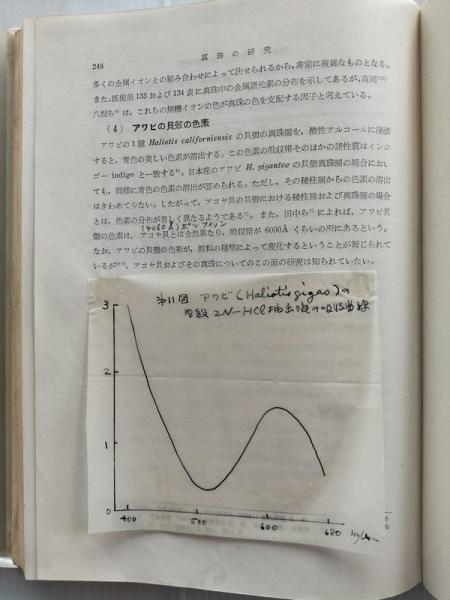 248
真珠の研究
多くの金属イオンとの組み合わせによって決せられるから,非常に複雑なものとなる。
また,既掲第133および134表に真珠中の金属諸元素の分布を示してあるが,高
八坂ら は,これらの無機イオンの色が真珠の色を支配する因子と考えている。
(4) アワビの貝殻の色素
アワビの1種 Haliotis californiensis の貝殻の真珠層を,酸性アルコールに浸漬
すると,青色の美しい色素が溶出する。この色素の吸収帯そのほかの諸性質はインジ
ゴー indigo と一致する。日本産のアワビ H. gigantea の貝殻真珠層の場合におい
ても,同様に青色の色素の溶出が認められる。ただし,その稜柱層からの色素の溶出
はきわめて少ない。したがって,アコヤ貝の貝殻における稜柱層および真珠層の場合
とは,色素の分布が著しく異なるようである。また,田中ら によれば,アワビ貝
(4060Å)ポルフィリン
殻の色素は,アコヤ貝とは全然異なり,吸収帯が6000Åくらいの所にあるという。
なお,アワビの貝殻の色彩が,餌料の種類によって変化するということが報じられて
いるが,アコヤ貝およびその真珠についてのこの面の研究は知られていない。
第11図 アワビ(Haliotis gigas)の
貝殻 2N-HCl抽出液の吸収曲線
3
2
1
0
400 500 600 680 mμ